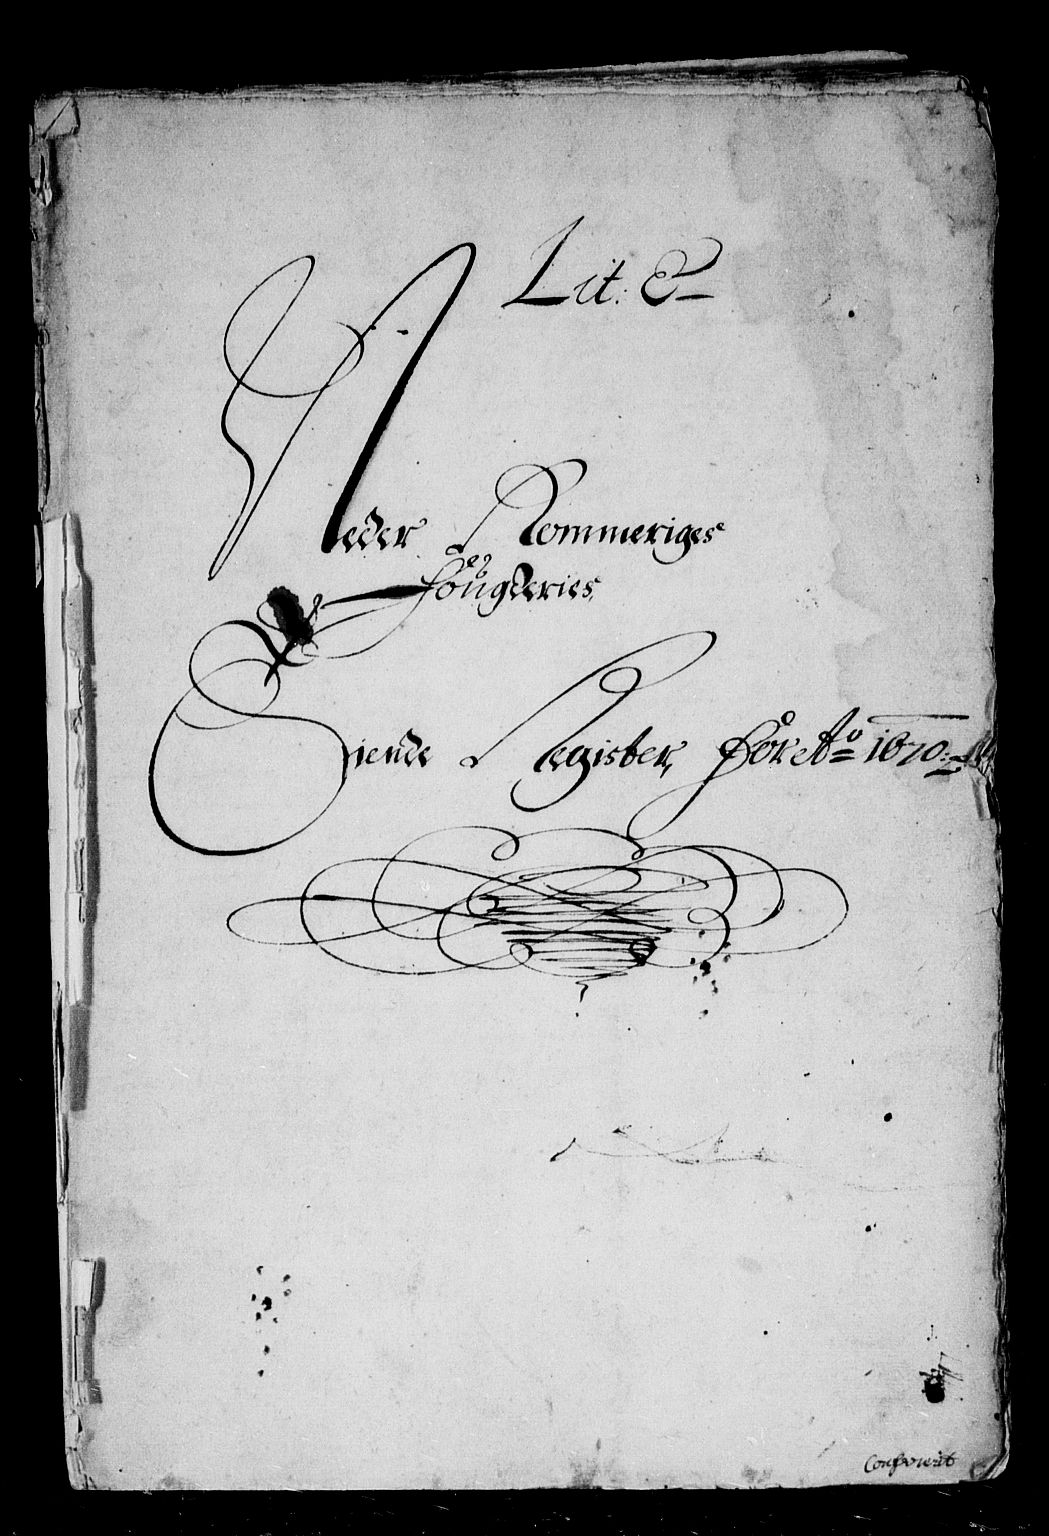 Lit: E
Neder Rommeriges
Fougderies
Tiende Register, For Ao 1670
Confererit